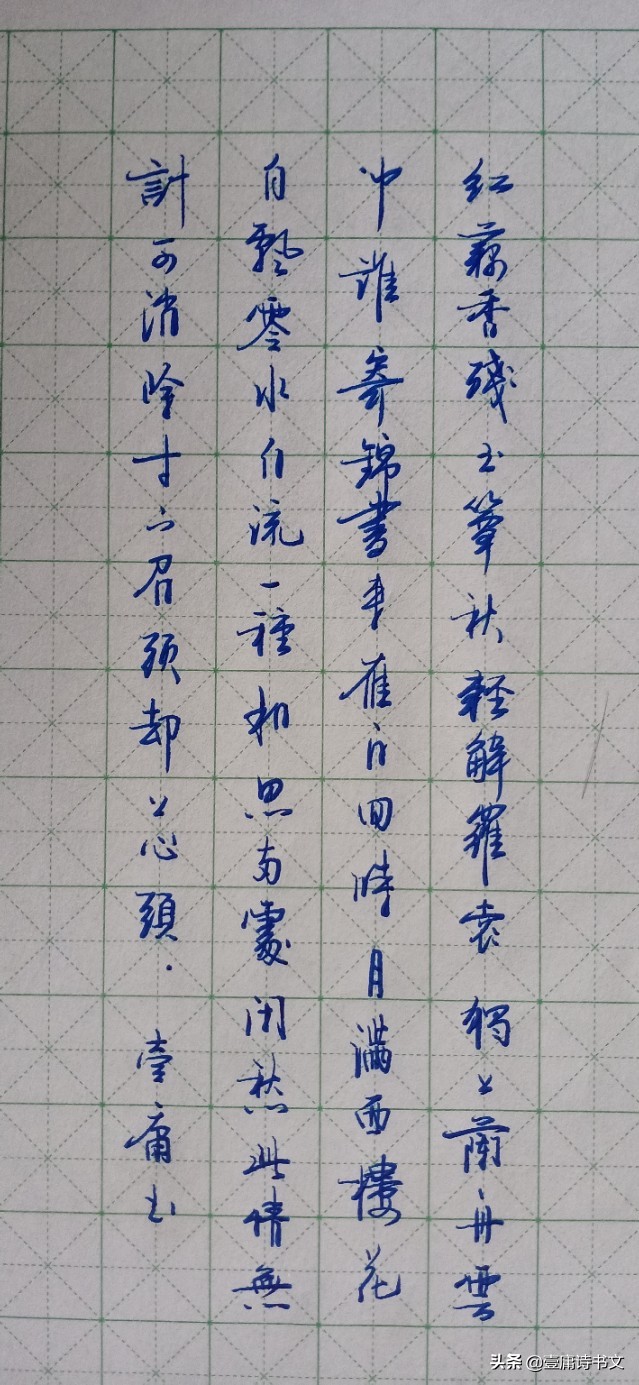 红藕香殘玉簟秋輕解羅裳獨上蘭舟雲
中誰寄錦書来雁字回時月滿西樓花
自飄零水自流一種相思兩處閑愁此情無
計可消除才下眉頭却上心頭.壹庸书
头条 @壹庸诗书文